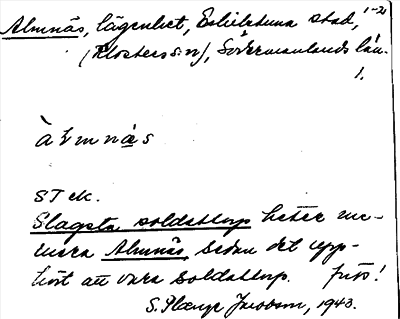 Almnäs, lägenhet, Eskilstuna stad, 1-21
(Klosters s:n), Södermanlands län.
1.
almnäs
Slagsta soldattorp heter nu-
mera Almnäs, sedan det upp-
hört att vara soldattorp.
S. Jacobson, 1943.